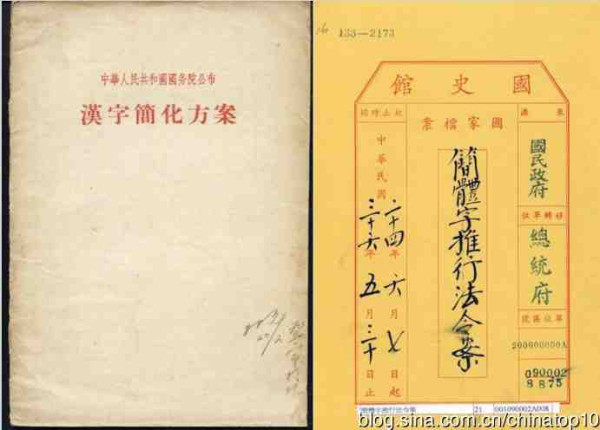 中華人民共和國國務院公布
漢字簡化方案
133—2173
國史館
國家檔案
國民政府
總統府
簡體字推行法令案
中華民國
二十四年六月七日起
三十六年五月三十日止
200000000A
090002
8875
21
001090002A008
blog.sina.com.cn/chinatop10